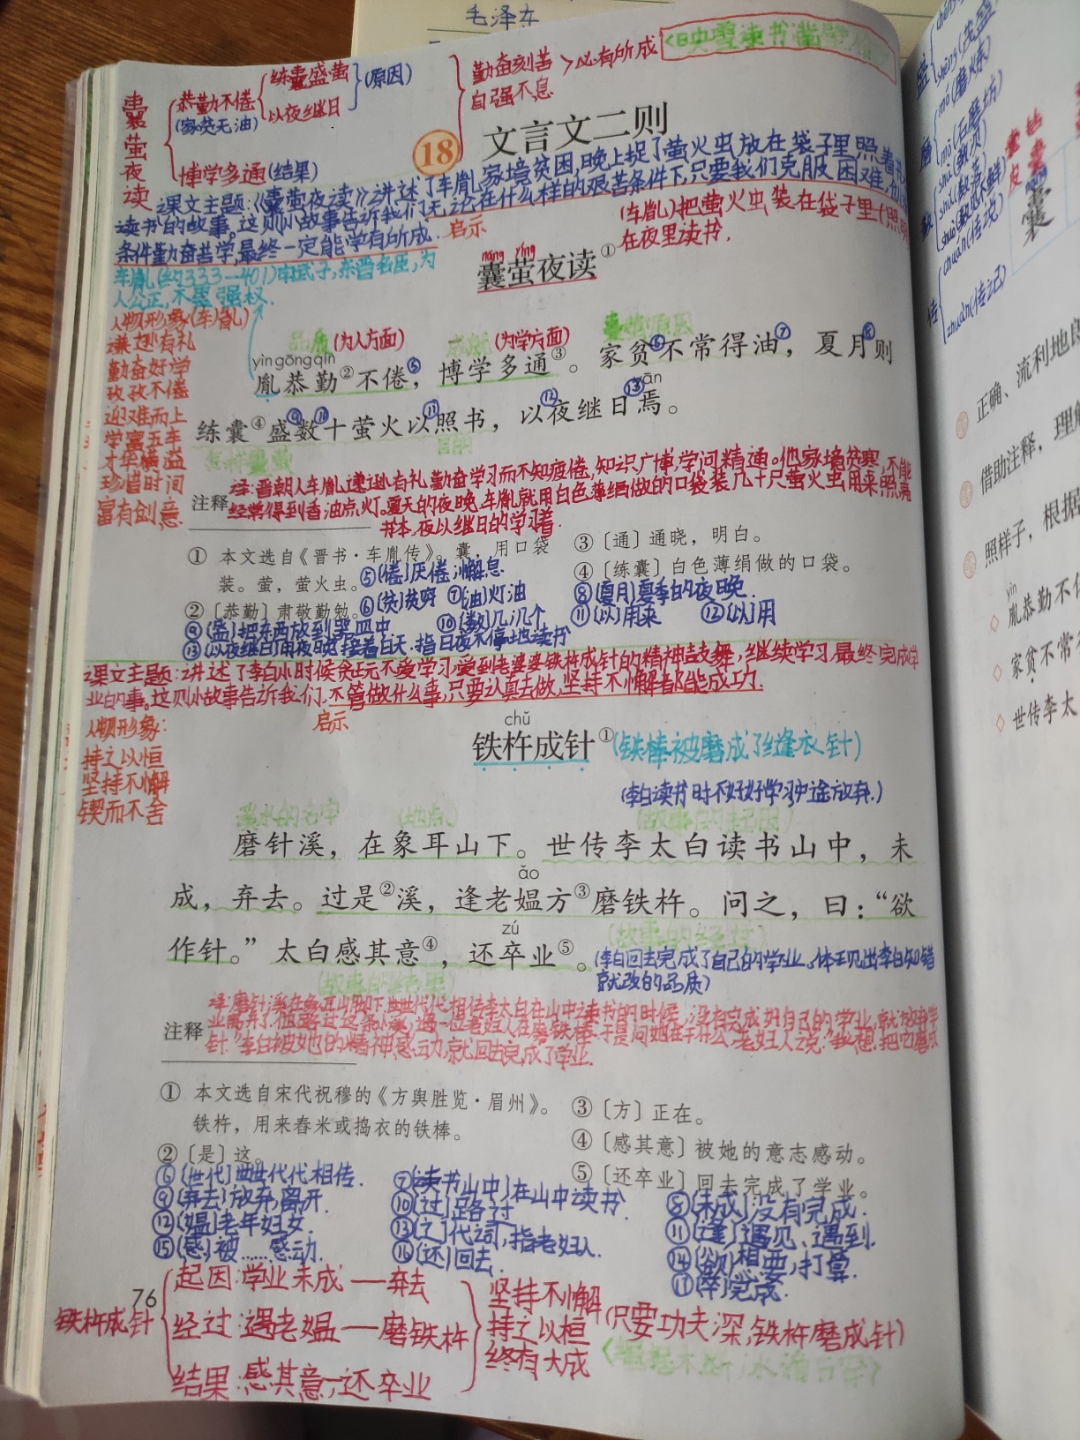 毛泽东
囊萤夜读
恭勤不倦
(家贫无油)
练囊盛萤
以夜继日
(原因)
博学多通(结果)
勤奋刻苦
自强不息
>必有所成
18 文言文二则
课文主题:《囊萤夜读》讲述了车胤家境贫困,晚上捉了萤火虫放在袋子里照着
读书的故事。这则小故事告诉我们无论在什么样的艰苦条件下,只要我们克服困难,
条件勤奋苦学,最终一定能学有所成. 启示
(车胤)把萤火虫装在袋子里(照明)
在夜里读书.
车胤(约333—401)字武子,东晋名臣,为
人公正,不畏强权.
náng yíng
囊萤夜读①
人物形象(车胤)
谦逊有礼
勤奋好学
孜孜不倦
迎难而上
学富五车
才华横溢
珍惜时间
富有创意.
品质(为人方面)
(为学方面)
yìn gōng qín
胤恭勤②不倦⑤,博学多通③。家贫⑥不常得油⑦,夏月⑧则
yān
练囊④盛⑨数⑩十萤火以⑪照书,以⑫夜继日⑬焉。
注释
译:晋朝人车胤谦逊有礼勤奋学习而不知疲倦,知识广博,学问精通。他家境贫寒,不能
经常得到香油点灯。夏天的夜晚,车胤就用白色薄绢做的口袋装几十只萤火虫用来照着
书本,夜以继日的学习着.
① 本文选自《晋书·车胤传》。囊,用口袋
装。萤,萤火虫。
③〔通〕通晓,明白。
④〔练囊〕白色薄绢做的口袋。
⑤(倦)厌倦,懈怠
②〔恭勤〕肃敬勤勉。
⑥(贫)贫穷 ⑦(油)灯油
⑧(夏月)夏季的夜晚.
⑨(盛)把东西放到器皿中 ⑩(数)几,几个 ⑪(以)用来 ⑫(以)用
⑬(以夜继日)用夜晚接着白天.指日夜不停地读书
课文主题:讲述了李白小时候贪玩不爱学习受到老婆婆铁杵成针的精神鼓舞,继续学习,最终完成学
业的事。这则小故事告诉我们,不管做什么事,只要认真去做,坚持不懈都能成功.
启示
人物形象:
持之以恒
坚持不懈
锲而不舍
chǔ
铁杵成针①(铁棒被磨成了缝衣针)
(李白读书时不好好学习中途放弃.)
(地点)
磨针溪,在象耳山下。世传李太白读书山中,未
ǎo
成,弃去。过是②溪,逢老媪方③磨铁杵。问之,曰:“欲
zú
作针。”太白感其意④,还卒业⑤。
(李白回去完成了自己的学业,体现出李白知错
就改的品质)
注释
① 本文选自宋代祝穆的《方舆胜览·眉州》。
铁杵,用来舂米或捣衣的铁棒。
②〔是〕这。
③〔方〕正在。
④〔感其意〕被她的意志感动。
⑤〔还卒业〕回去完成了学业。
⑥(世代)世世代代相传. ⑦(读书山中)在山中读书. ⑧(未成)没有完成.
⑨(弃去)放弃,离开. ⑩(过)路过 ⑪(逢)遇见、遇到.
⑫(媪)老年妇女. ⑬(之)代词,指老妇人. ⑭(欲)想要,打算.
⑮(感)被……感动. ⑯(还)回去. ⑰(卒)完成.
76
铁杵成针
起因:学业未成——弃去
经过:遇老媪——磨铁杵
结果:感其意,还卒业
坚持不懈
持之以恒
终有大成
(只要功夫深,铁杵磨成针)
mó(磨炼)
mò(石磨)
chuán(传说)
zhuàn(传记)
囊
正确、流利地
借助注释,理
照样子,根据
yìn
胤恭勤不
家贫不常
世传李太